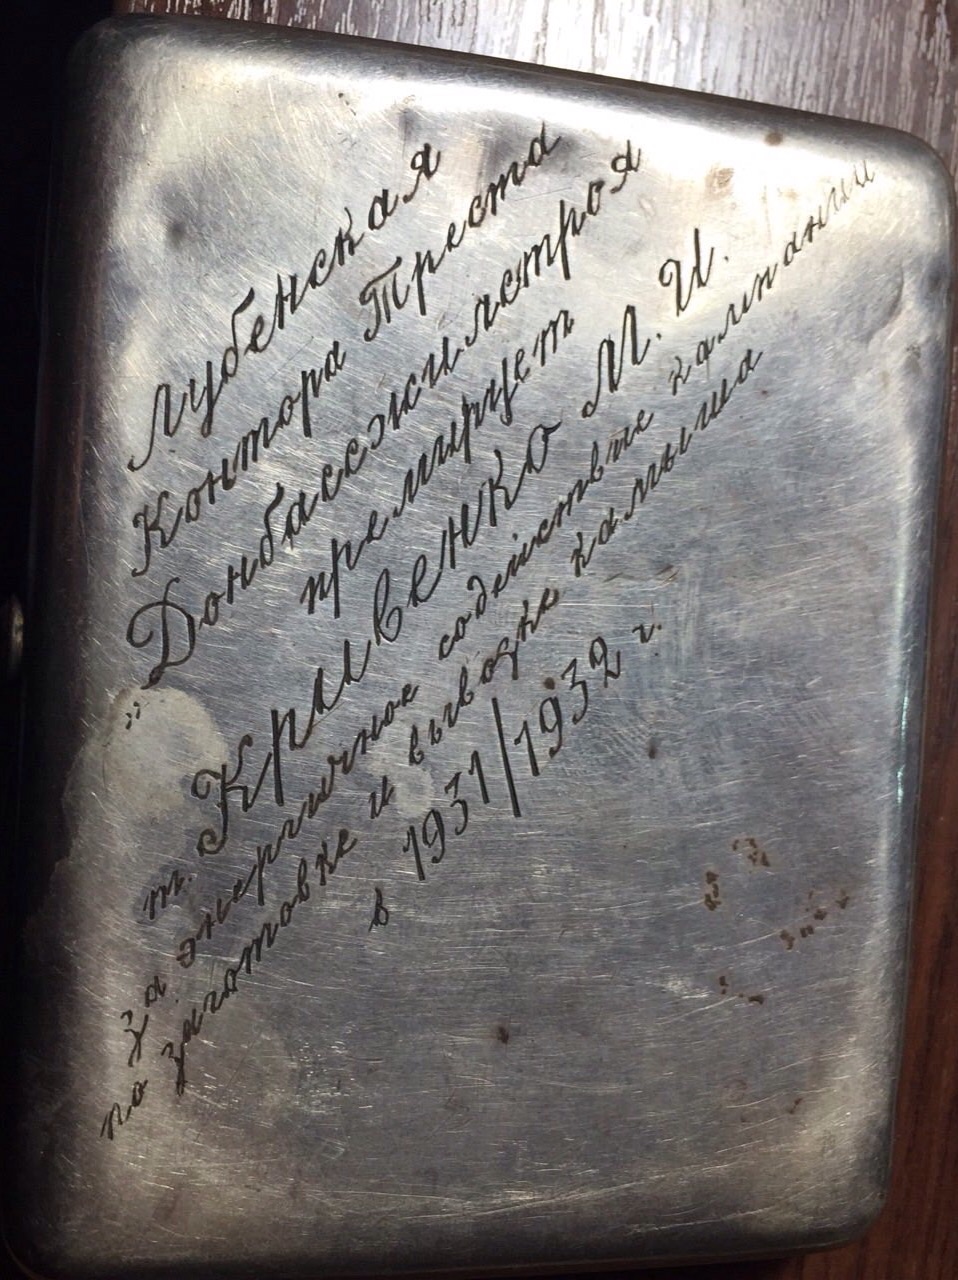 Лубенская
Контора Треста
"Донбассжилстроя
премирует
т. Кривенко М. И.
за энергичное содействие кампании
по заготовке и вывозке камыша
в 1931/1932 г.